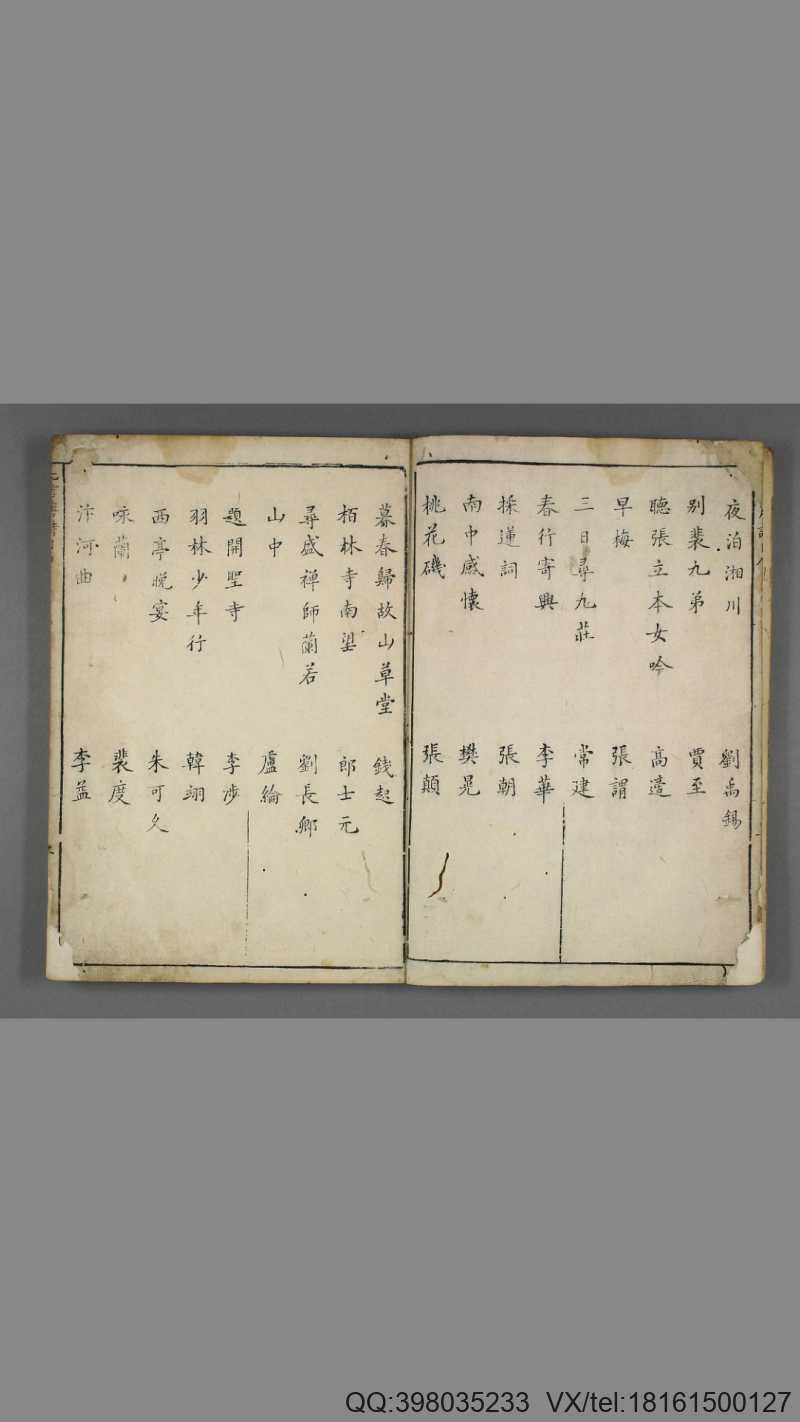 夜泊湘川 劉禹錫
別裴九弟 賈至
聽張立本女吟 高適
早梅 張謂
三日尋九莊 常建
春行寄興 李華
採蓮詞 張朝
南中感懷 樊晃
桃花磯 張顛
暮春歸故山草堂 錢起
栢林寺南望 郎士元
尋盛禪師蘭若 劉長卿
山中 盧綸
題開聖寺 李涉
羽林少年行 韓翃
西亭晚宴 朱可久
咏蘭 裴度
汴河曲 李益
QQ:398035233 VX/tel:18161500127